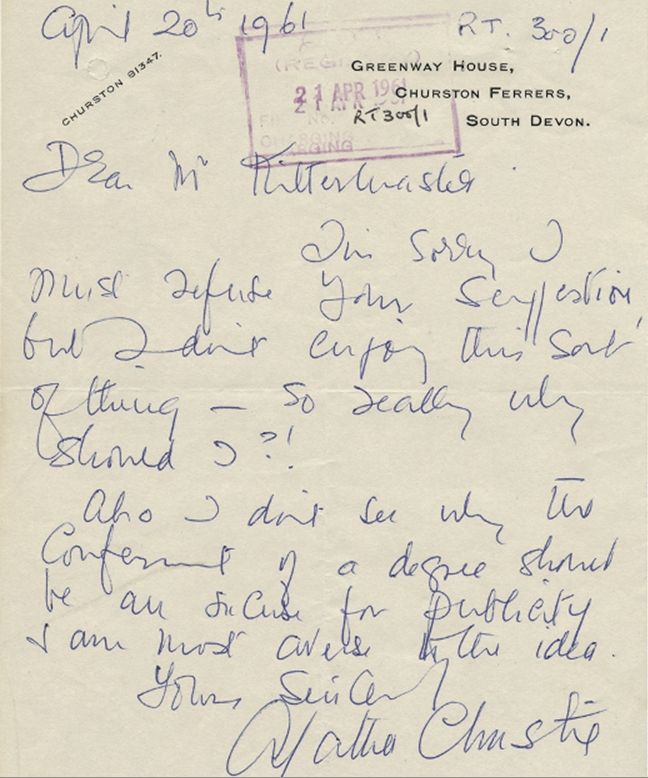 April 20th 1961
RT. 300/1
CHURSTON 81347.
GREENWAY HOUSE,
CHURSTON FERRERS,
SOUTH DEVON.
21 APR 1961
RT300/1
Dear Mr Kittermaster
I'm sorry I
must refuse your suggestion,
but I don't enjoy this sort
of thing — so really why
should I?!
Also I don't see why the
conferment of a degree should
be an excuse for publicity
I am most averse to the idea.
Yours Sincerely
Agatha Christie